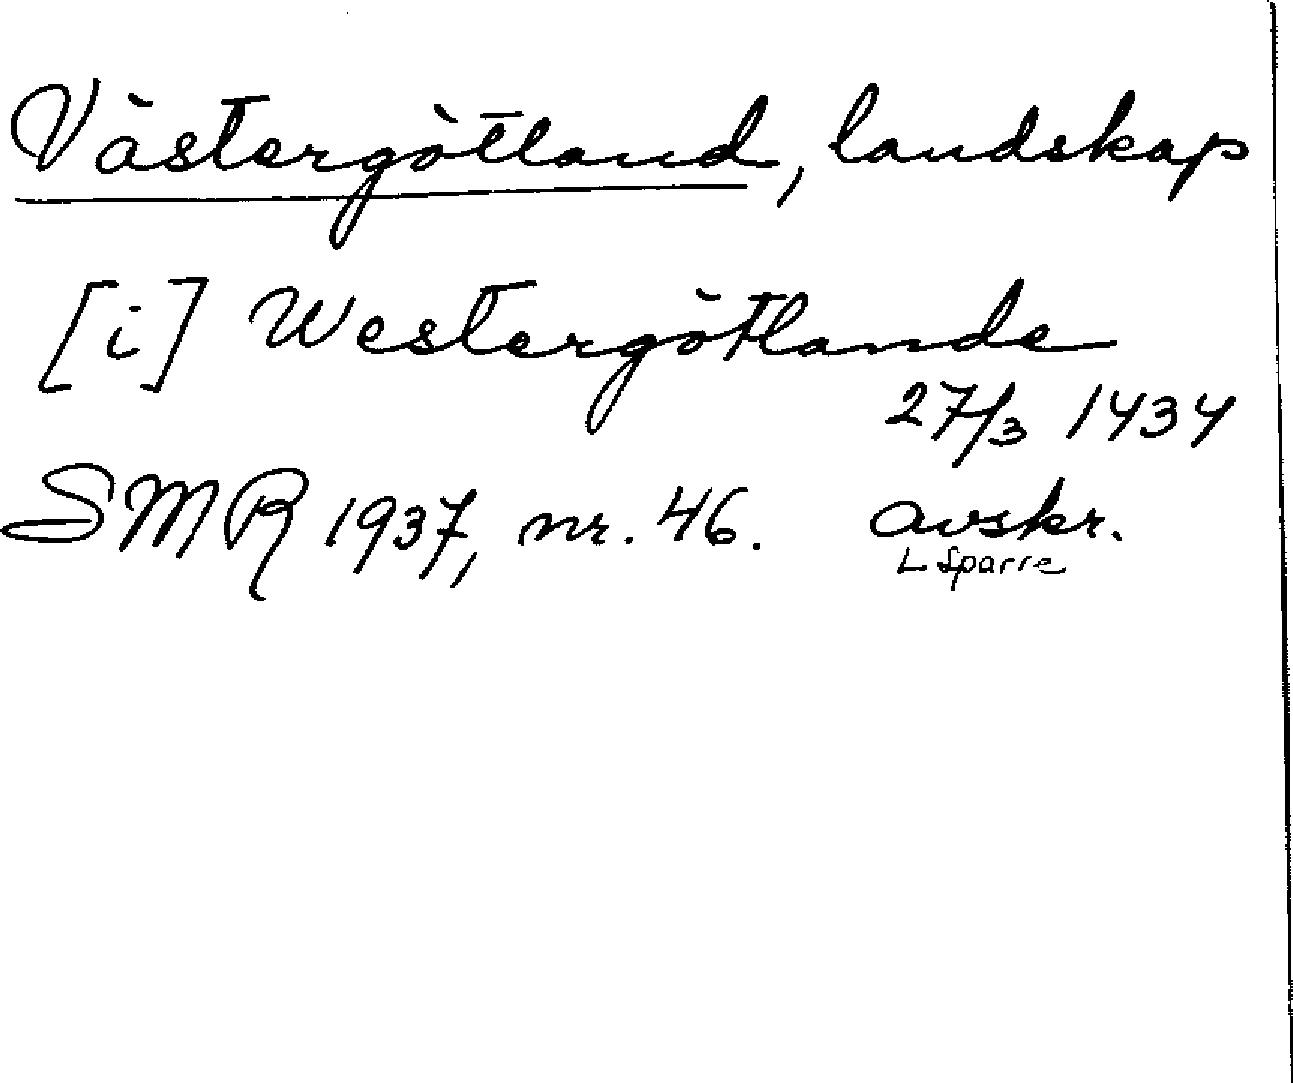 Västergötland, landskap
[i] Westergötlande
27/3 1434
SMR 1937, nr. 46. avskr.
L Sparre